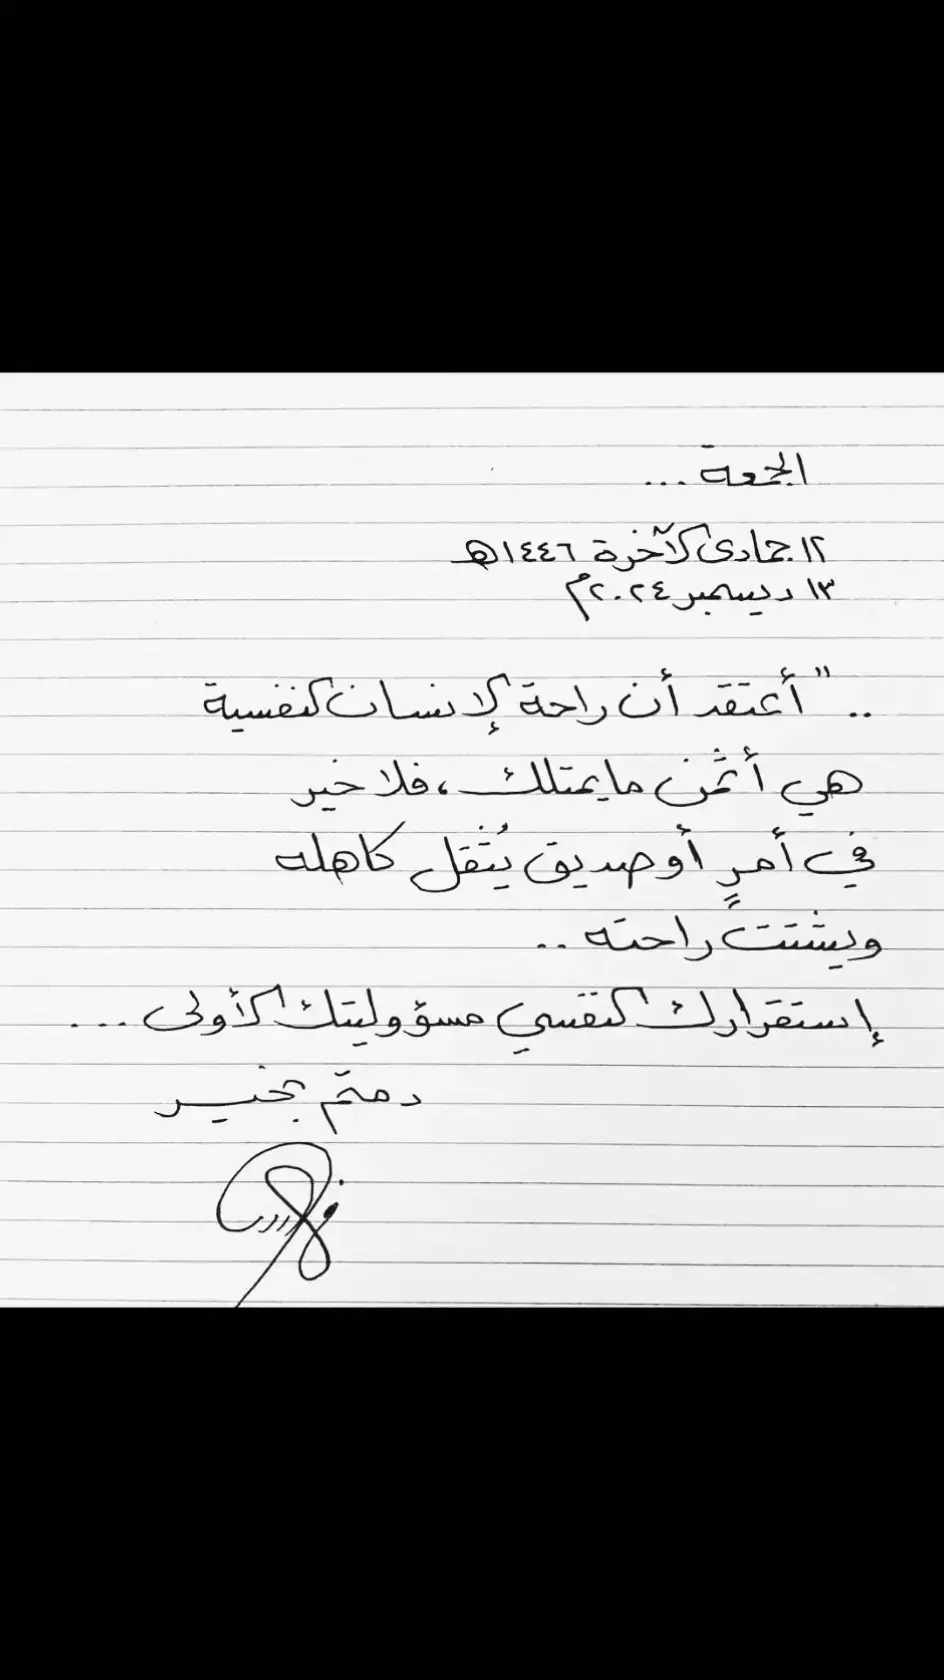 الجمعة ...
١٢ جمادى الآخرة ١٤٤٦هـ
١٣ ديسمبر ٢٠٢٤م
.. " أعتقد أن راحة الإنسان النفسية
هي أثمن ما يمتلك ، فلا خير
في أمرٍ أو صديق يُثقل كاهله
ويشتت راحته ..
إستقرارك النفسي مسؤوليتك الأولى ...
دمتم بخيـر